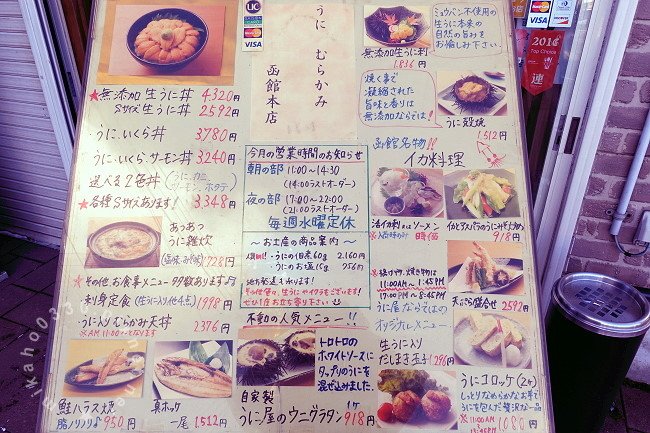 UC
MasterCard
VISA
うに むらかみ
函館本店
★無添加生うに丼 4320円
Sサイズ生うに丼 2592円
うに、いくら丼 3780円
うに、いくら、サーモン丼 3240円
選べる2色丼
うに、カニ
サーモン、ホタテ
★各種Sサイズあります! 3,348円
あつあつ
うに雑炊
(塩味・みそ味)
1728円
★その他、お食事メニュー多数あります♪
刺身定食(生うに入り他4点) 1998円
うに入りむらかみ天丼 2376円
※AM11:00～となります
鮭ハラス焼
脂ノリノリ♪ 950円
真ホッケ
一尾 1,512円
今月の営業時間のお知らせ
朝の部 11:00～14:30
(14:00ラストオーダー)
夜の部 17:00～22:00
(21:00ラストオーダー)
毎週水曜定休
～お土産の商品案内～
うにの佃煮60g 2,160円
うにのお塩15g 756円
地方発送も承ります!
ぜひ1階お立ち寄り下さい
不動の人気メニュー!!
トロトロの
ホワイトソースに
タップリのうにを
混ぜ込みました。
自家製
うに屋のウニグラタン 1ケ 918円
無添加生うに刺
1,836円
ミョウバン不使用の
生うに本来の
自然の旨みを
お愉しみ下さい。
焼く事で
凝縮された
旨味と香りは
無添加ならでは!
うに殻焼
1,512円
函館名物!!
イカ料理
活イカ刺 又は ソーメン
※入荷時のみ 時価
イカとアスパラのうにみそ炒め
918円
17:00PM～8:45PM
うに屋ならではの
オリジナルメニュー
天ぷら盛合せ 2592円
生うに入り
だしまき玉子 1,296円
うにコロッケ(2ケ)
しっとりなめらかなお芋で
うにを包んだ贅沢な一品
1080円
VISA
2016
Top Choice
連
ikaho0330